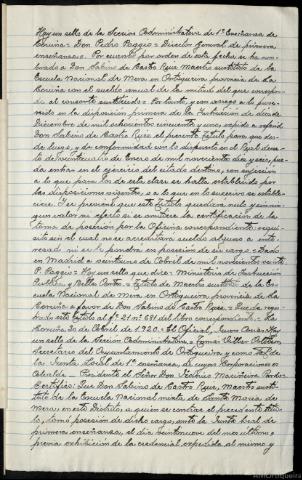 Hay un sello de la Seccion Administrativa de 1ª Enseñanza de
Coruña = Don Pedro Poggio = Director General de primera
enseñanza = Por cuanto por orden de esta fecha se ha nom-
brado a Don Sabino de Castro Rey Maestro sustituto de la
Escuela Nacional de Mera en Ortigueira provincia de La
Coruña con el sueldo anual de la mitad del que correspon-
de al consorte sustituido = Por tanto, y con arreglo a lo preve-
nido en la disposicion primera de la Instruccion de doce
Diciembre de mil ochocientos cincuenta, expido a
Don Sabino de Castro Rey el presente Titulo para que des-
de luego, y de conformidad con lo dispuesto en el Real decre-
to de veintisiete de Enero de mil novecientos diez y seis, pue-
da entrar en el ejercicio del citado destino, con sujecion
a lo que para los de esta clase se halla establecido por
las disposiciones vigentes, o a lo que en lo sucesivo se estable-
ciere. Y se previene que este Titulo quedará nulo y sin nin-
gun valor ni efecto si se omitiere la certificacion de la
toma de posesion por la Oficina correspondiente, requi-
sito sin el cual no se acreditará sueldo alguno a este in-
teresado ni se le pondrá en posesion de su cargo = Dado
en Madrid a veintiuno de Abril de mil novecientos veinte
P. Poggio = Hay un sello que dice = Ministerio de Instruccion
Publica y Bellas Artes = Titulo de Maestro sustituto de la Es-
cuela Nacional de Mera en Ortigueira provincia de La
Coruña a favor de Don Sabino de Castro Rey = Queda regis-
trado este Titulo al fº 21 nº 681 del libro correspondiente = La
Coruña 30 de Abril de 1.920 = El Oficial, = Hay
un sello de la Seccion Administrativa =
Secretario del Ayuntamiento de Ortigueira y como tal de
la Junta Local de 1ª enseñanza, de cuyas Corporaciones es
Alcalde - Presidente el Señor Don Federico Maciñeira Pardo =
Certifico: Que Don Sabino de Castro Rey, Maestro susti-
tuto de la Escuela Nacional mixta de Santa Maria de
Mera en este Distrito, a quien se contrae el presente titu-
lo, tomó posesion de dicho cargo, ante la Junta local de
primera enseñanza, el dia veintiuno del mes ultimo y
previa exhibicion de la credencial expedida al mismo y